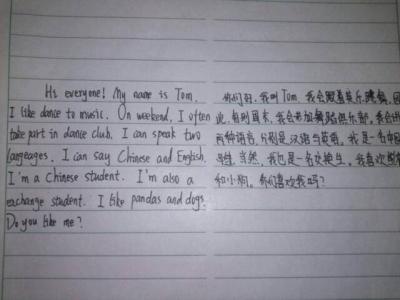 Hi everyone! My name is Tom.
I like dance to music. On weekend, I often
take part in dance club. I can speak two
langeages. I can say Chinese and English.
I'm a Chinese student. I'm also a
exchange student. I like pandas and dogs.
Do you like me?
你们好，我叫Tom，我会跟着音乐跳舞，因
此，每到周末，我会参加舞蹈俱乐部，我会讲
两种语言，分别是汉语与英语，我是一名中国
学生，当然，我也是一名交换生，我喜欢熊猫
和小狗。你们喜欢我吗？